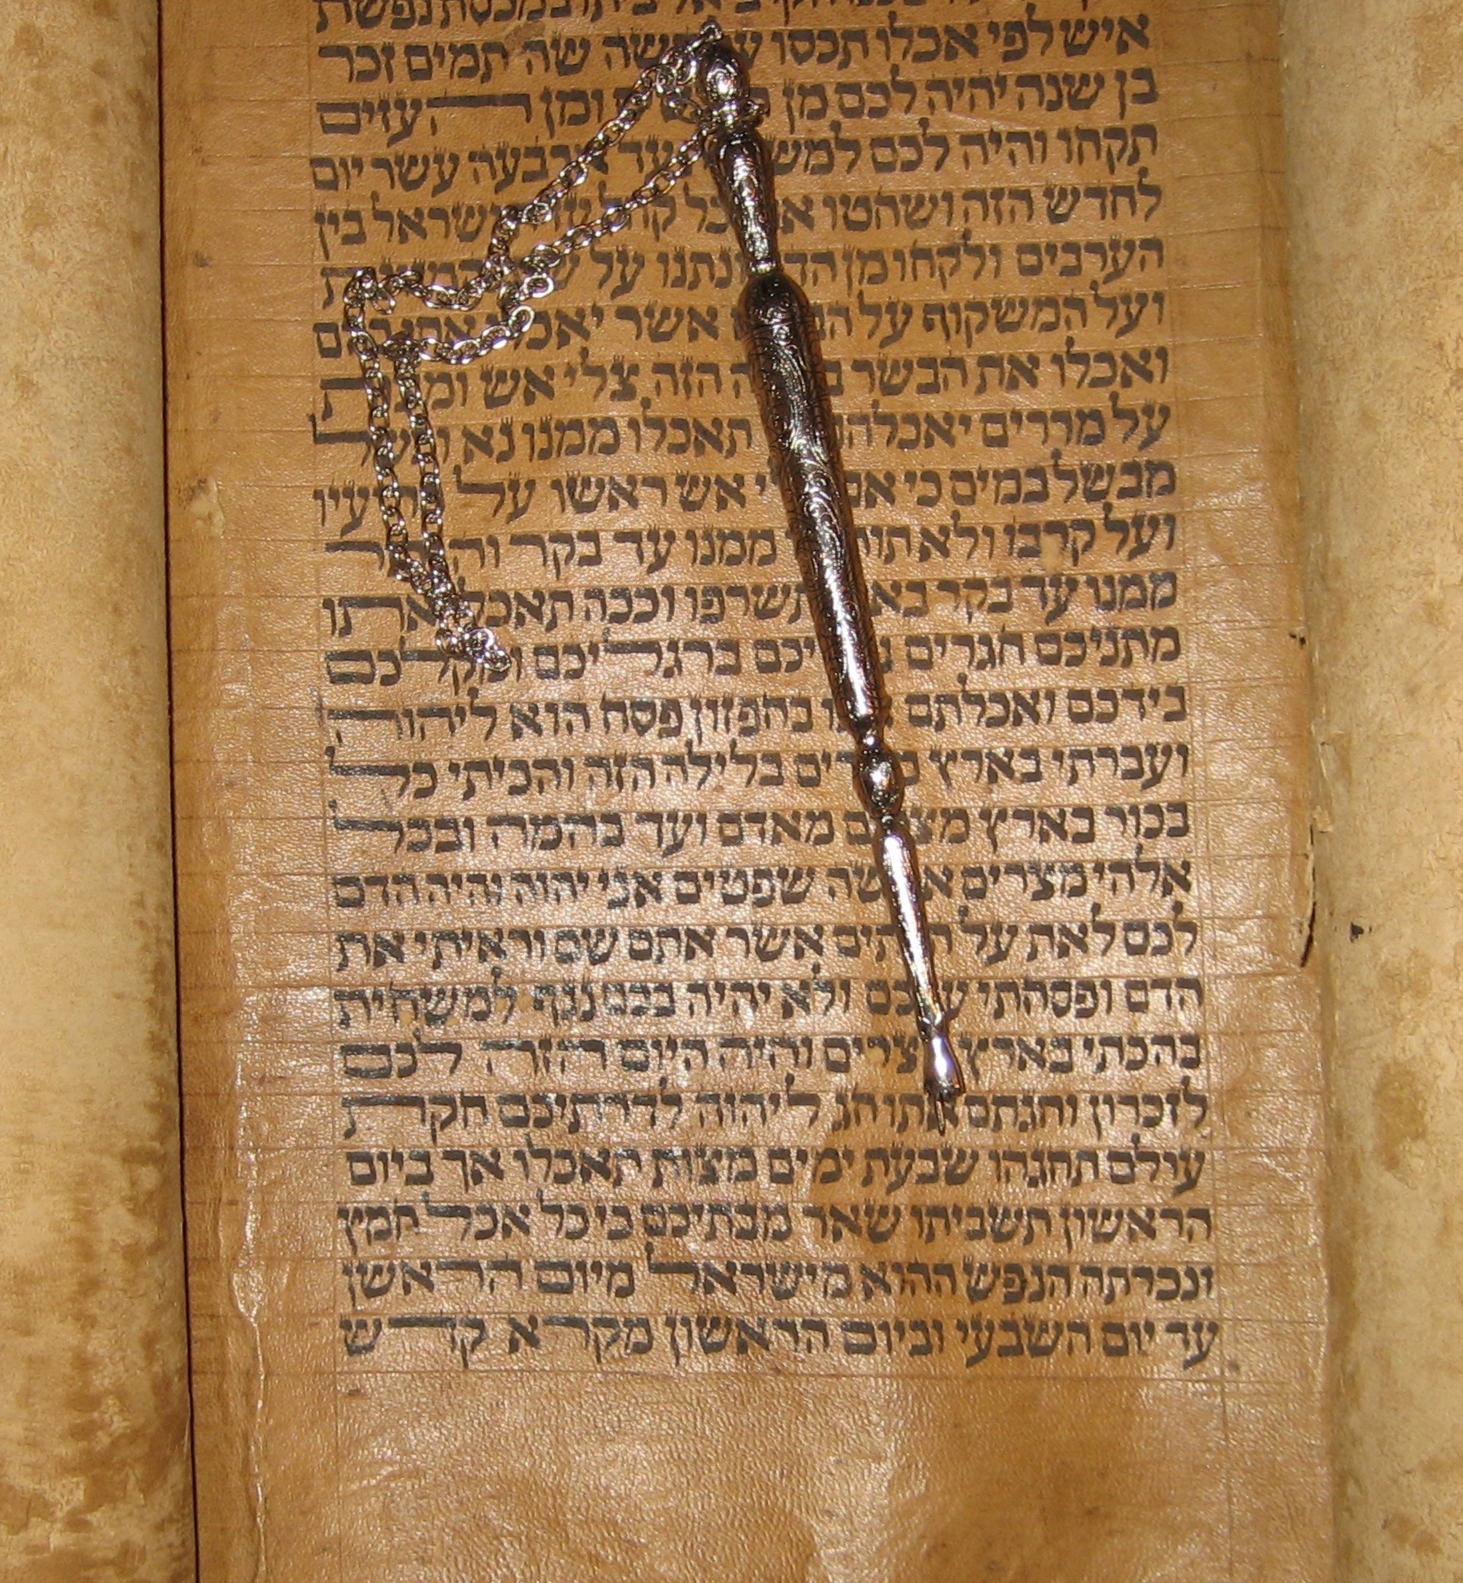 איש לפי אכלו תכסו על השה שה תמים זכר
בן שנה יהיה לכם מן ומן העזים
תקחו והיה לכם עד ארבעה עשר יום
לחדש הזה ושחטו כל קהל ישראל בין
הערבים ולקחו מן הדם ונתנו על
ועל המשקוף על אשר יאכלו אתו בהם
ואכלו את הבשר הזה צלי אש ומצות
על מררים יאכלהו תאכלו ממנו נא ובשל
מבשל במים כי אם אש ראשו על כרעיו
ועל קרבו ולא ממנו עד בקר והנתר
ממנו עד בקר באש תשרפו וככה תאכלו אתו
מתניכם חגרים ברגליכם ומקלכם
בידכם ואכלתם אתו בחפזון פסח הוא ליהוה
ועברתי בארץ מצרים בלילה הזה והכיתי כל
בכור בארץ מצרים מאדם ועד בהמה ובכל
אלהי מצרים אעשה שפטים אני יהוה והיה הדם
לכם לאת על הבתים אשר אתם שם וראיתי את
הדם ופסחתי עלכם ולא יהיה בכם נגף למשחית
בהכתי בארץ מצרים והיה היום הזה לכם
לזכרון וחגתם אתו חג ליהוה לדרתיכם חקת
עולם תחגהו שבעת ימים מצות תאכלו אך ביום
הראשון תשביתו שאר מבתיכם כי כל אכל חמץ
ונכרתה הנפש ההוא מישראל מיום הראשן
עד יום השבעי וביום הראשון מקרא קדש